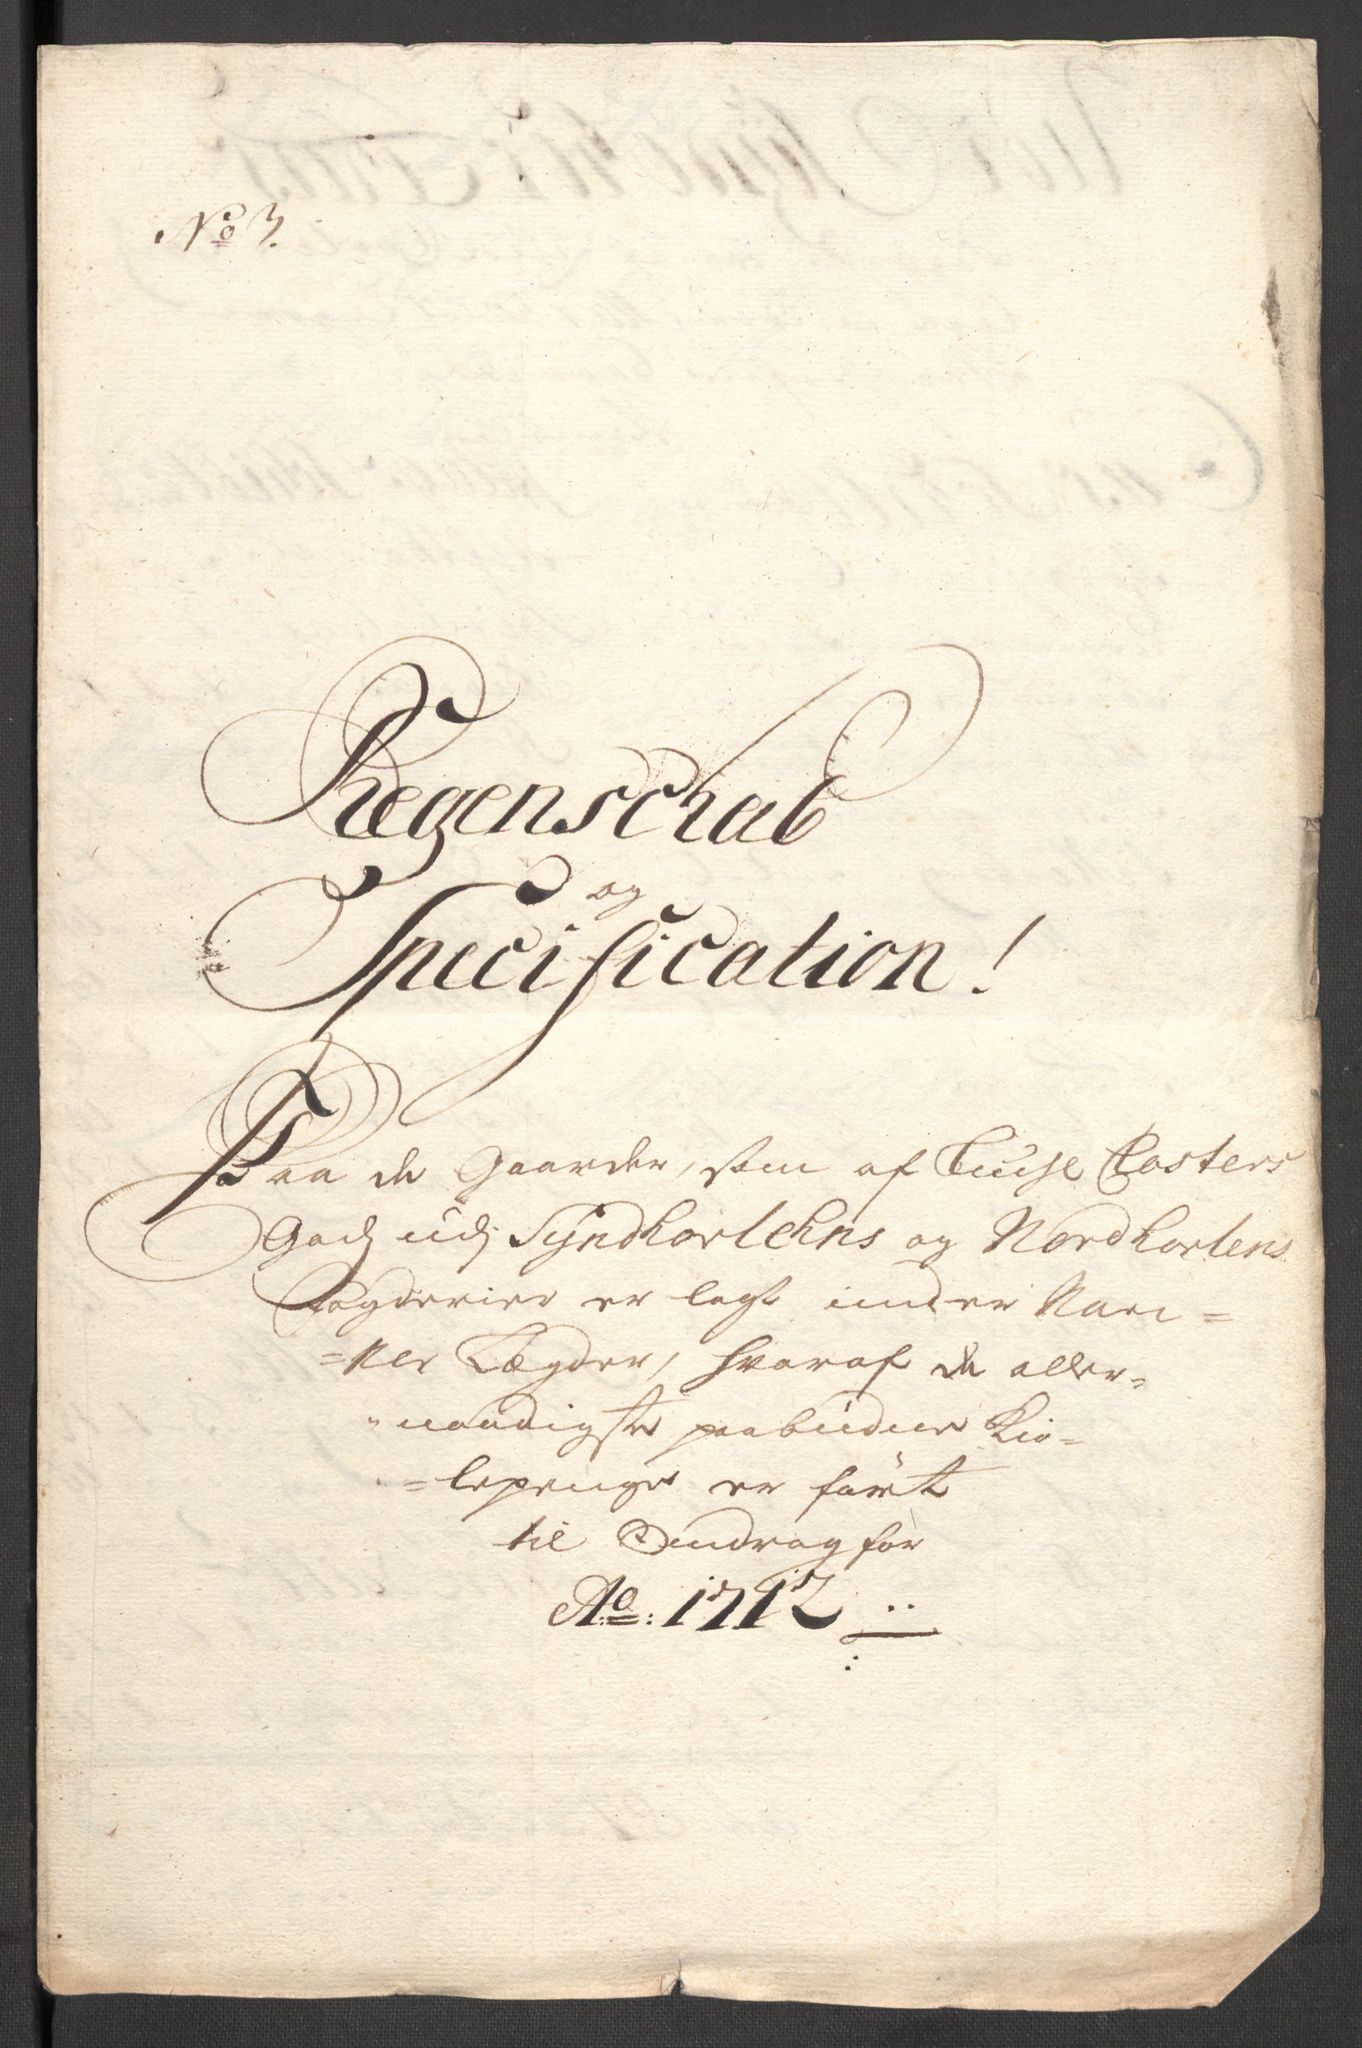 No 3.
Regenschab
og
Specification!
Paa de Gaarder, som af Lüse Closters
Godz udj Syndhorlehns og Nordhorlens
Fogderier er lagt under Mari=
=ner Lægder, hvoraf de aller=
=naadigste paabudne Kio=
=lepenge er fört
til Indrag for
Ao: 1712